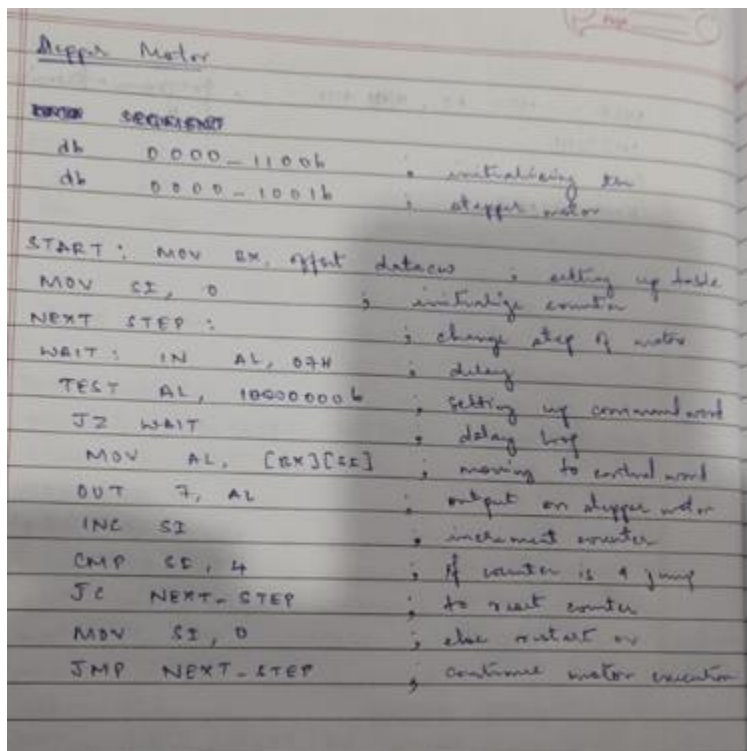 Stepper Motor
SEGMENT
db 0000_1100b ; initializing the
db 0000_1001b ; stepper motor
START : MOV BX, offset datacw ; setting up table
MOV SI, 0 ; initialize counter
NEXT STEP : ; change step of motor
WAIT : IN AL, 07H ; delay
TEST AL, 10000000b ; setting up command word
JZ WAIT ; delay loop
MOV AL, [BX][SI] ; moving to control word
OUT 7, AL ; output on stepper motor
INC SI ; increment counter
CMP SI, 4 ; if counter is 4 jump
JC NEXT_STEP ; to reset counter
MOV SI, 0 ; else restart or
JMP NEXT_STEP ; continue motor execution